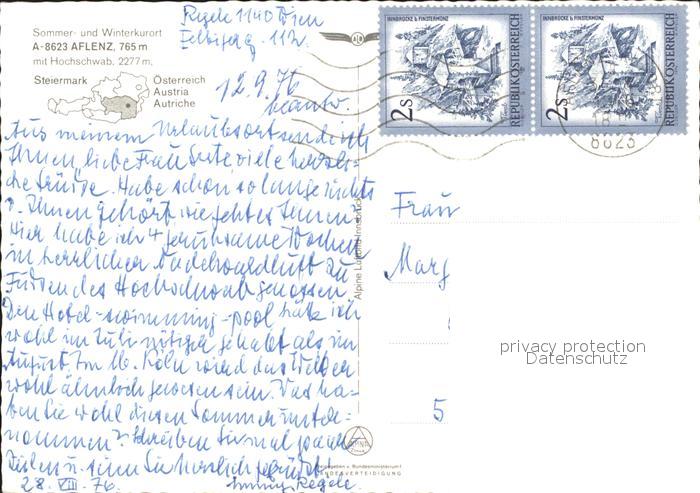 Regele 1140 Wien
Felbigerg. 112.
Sommer- und Winterkurort
A-8623 AFLENZ, 765 m
mit Hochschwab, 2277 m,
Steiermark
Österreich
Austria
Autriche
12.9.76
beantw.
INNBRÜCKE b. FINSTERMÜNZ
2S
REPUBLIK ÖSTERREICH
INNBRÜCKE b. FINSTERMÜNZ
2S
REPUBLIK ÖSTERREICH
8623
Aus meinem Urlaubsort sende ich
Ihnen, liebe Frau viele herzli-
che Grüße. Habe schon so lange nichts
v. Ihnen gehört, wie geht es Ihnen?
Hier habe ich 4 geruhsame Wochen
in herrlicher Nadelwaldluft zu
Füßen des Hochschwab genossen.
Den Hotel-swimming-pool hätte ich
wohl im Juli nötiger gehabt als im
August. Im Köln wird das Wetter
wohl ähnlich gewesen sein. Was ha-
ben Sie wohl diesen Sommer unter-
nommen? Schreiben Sie mal ein paar
Zeilen u. seien Sie herzlich gegrüßt
28. VIII. 76. Regele.
Frau
Marg
5
Alpine Luftbild-Innsbruck
privacy protection
Datenschutz